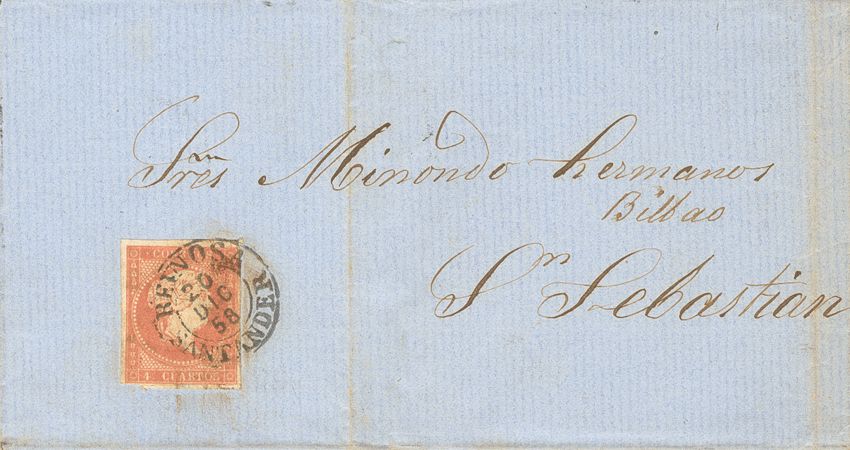 Sres Minondo hermanos
Bilbao
Sn Sebastian
REYNOSA
20
DIC
58
SANTANDER
CO
4 CUARTOS